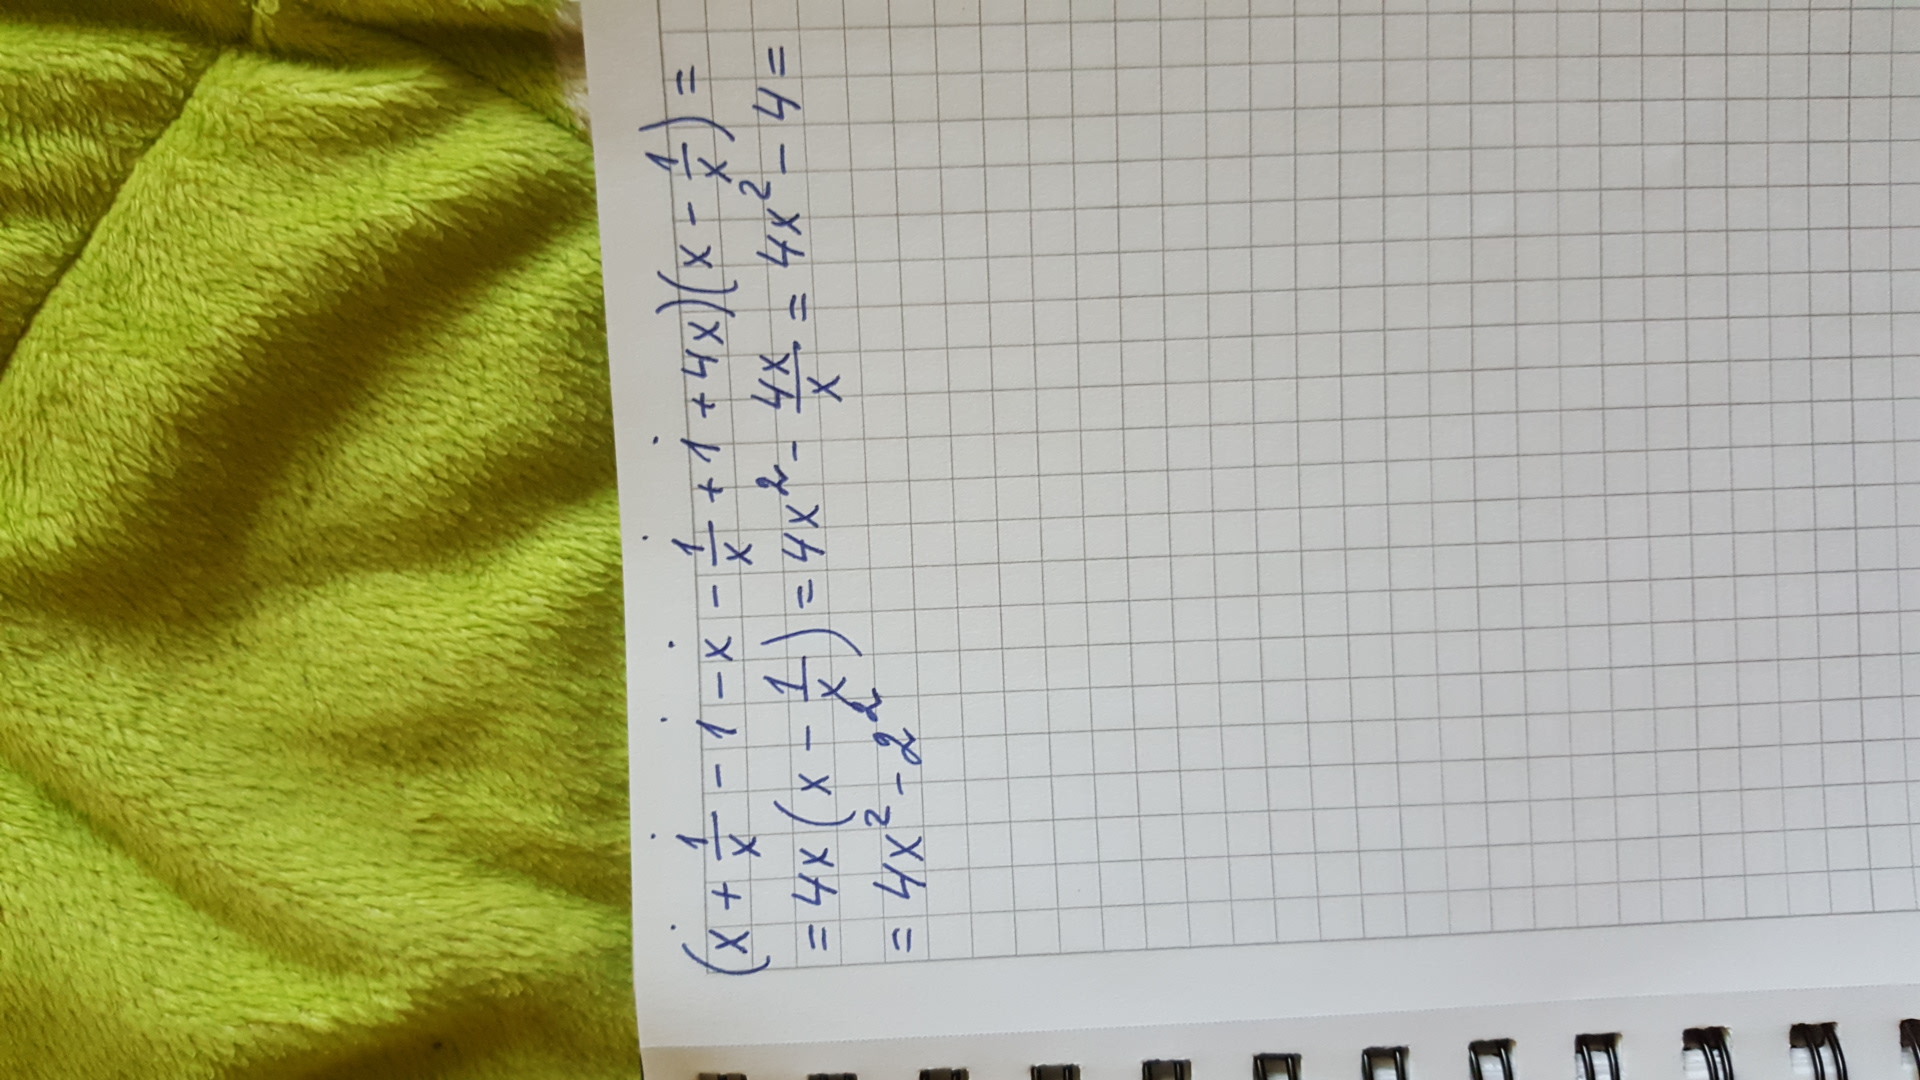 (x + 1/x - 1 - x - 1/x + 1 + 4x)(x - 1/x) =
= 4x(x - 1/x) = 4x² - 4x/x = 4x² - 4 =
= 4x² - 2²